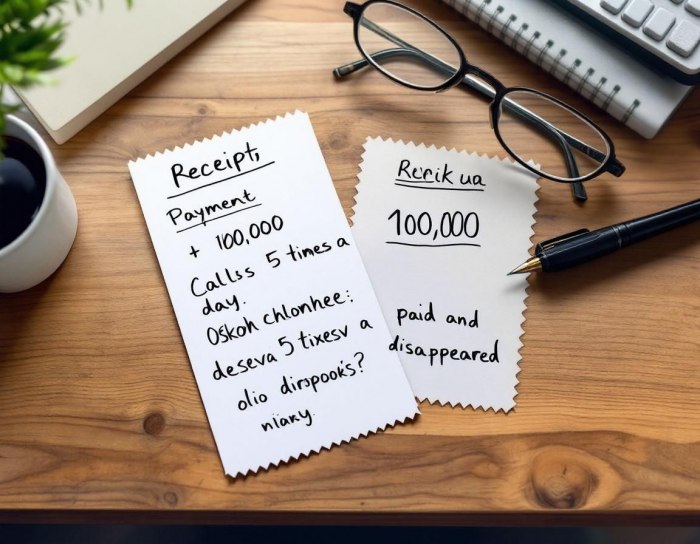 Receipt,
Payment
+ 100,000
Callss 5 times a
day.
Oskoh chlonhee:
deseva 5 tixesv a
olio dirspooks?
niany.
Rerik ua
100,000
paid and
disappeared